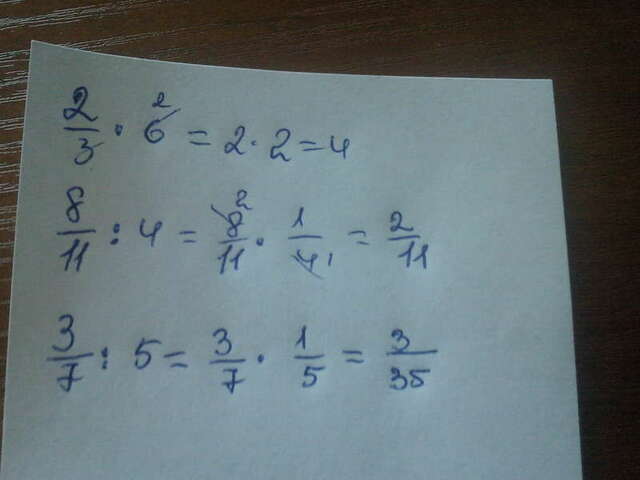 2/3 · 6² = 2 · 2 = 4
8/11 : 4 = 8²/11 · 1/4₁ = 2/11
3/7 : 5 = 3/7 · 1/5 = 3/35